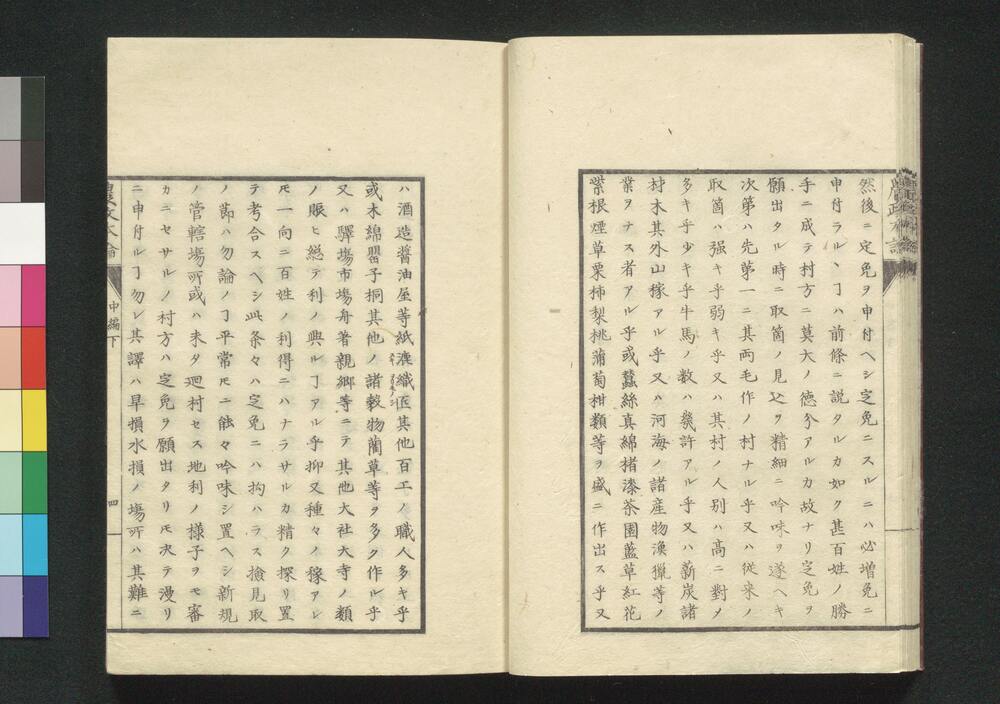 然後ニ定免ヲ申付ヘシ定免ニスルニハ必増免ニ
申付ラルヽヿハ前條ニ説タルカ如ク甚百姓ノ勝
手ニ成テ村方ニ莫大ノ徳分アルカ故ナリ定免ヲ
願出タル時ニ取箇ノ見込ヲ精細ニ吟味ヲ遂ヘキ
次第ハ先第一ニ其両毛作ノ村ナル乎又ハ従来ノ
取箇ハ强キ乎弱キ乎又ハ其村ノ人別ハ高ニ對〆
多キ乎少キ乎牛馬ノ数ハ幾許アル乎又ハ薪炭諸
材木其外山稼アル乎又ハ河海ノ諸産物漁獵等ノ
業ヲナス者アル乎或蠶絲真綿楮漆茶園藍草紅花
紫根煙草栗柿梨桃蒲萄柑類等ヲ盛ニ作出ス乎又
ハ酒造醤油屋等紙漉織匠其他百工ノ職人多キ乎
或木綿罌子桐其他ノ諸穀物藺草等ヲ多ク作ル乎
又ハ驛塲市塲舟著親郷等ニテ其他大社大寺ノ類
ノ賑ヒ総テ利ノ興ルヿアル乎抑又種々ノ稼アレ
𪜈一向ニ百姓ノ利得ニハナラサルカ精ク探リ置
テ考合スヘシ此条々ハ定免ニハ拘ハラス撿見取
ノ節ハ勿論ノヿ平常𪜈ニ能々吟味シ置ヘシ新規
ノ管轄塲所或ハ未タ廻村セス地利ノ様子ヲモ審
カニセサルノ村方ハ定免ヲ願出タリ𪜈决テ漫リ
ニ申付ルヿ勿レ其譯ハ旱損水損ノ塲所ハ其難ニ
農政本論
中編下
四